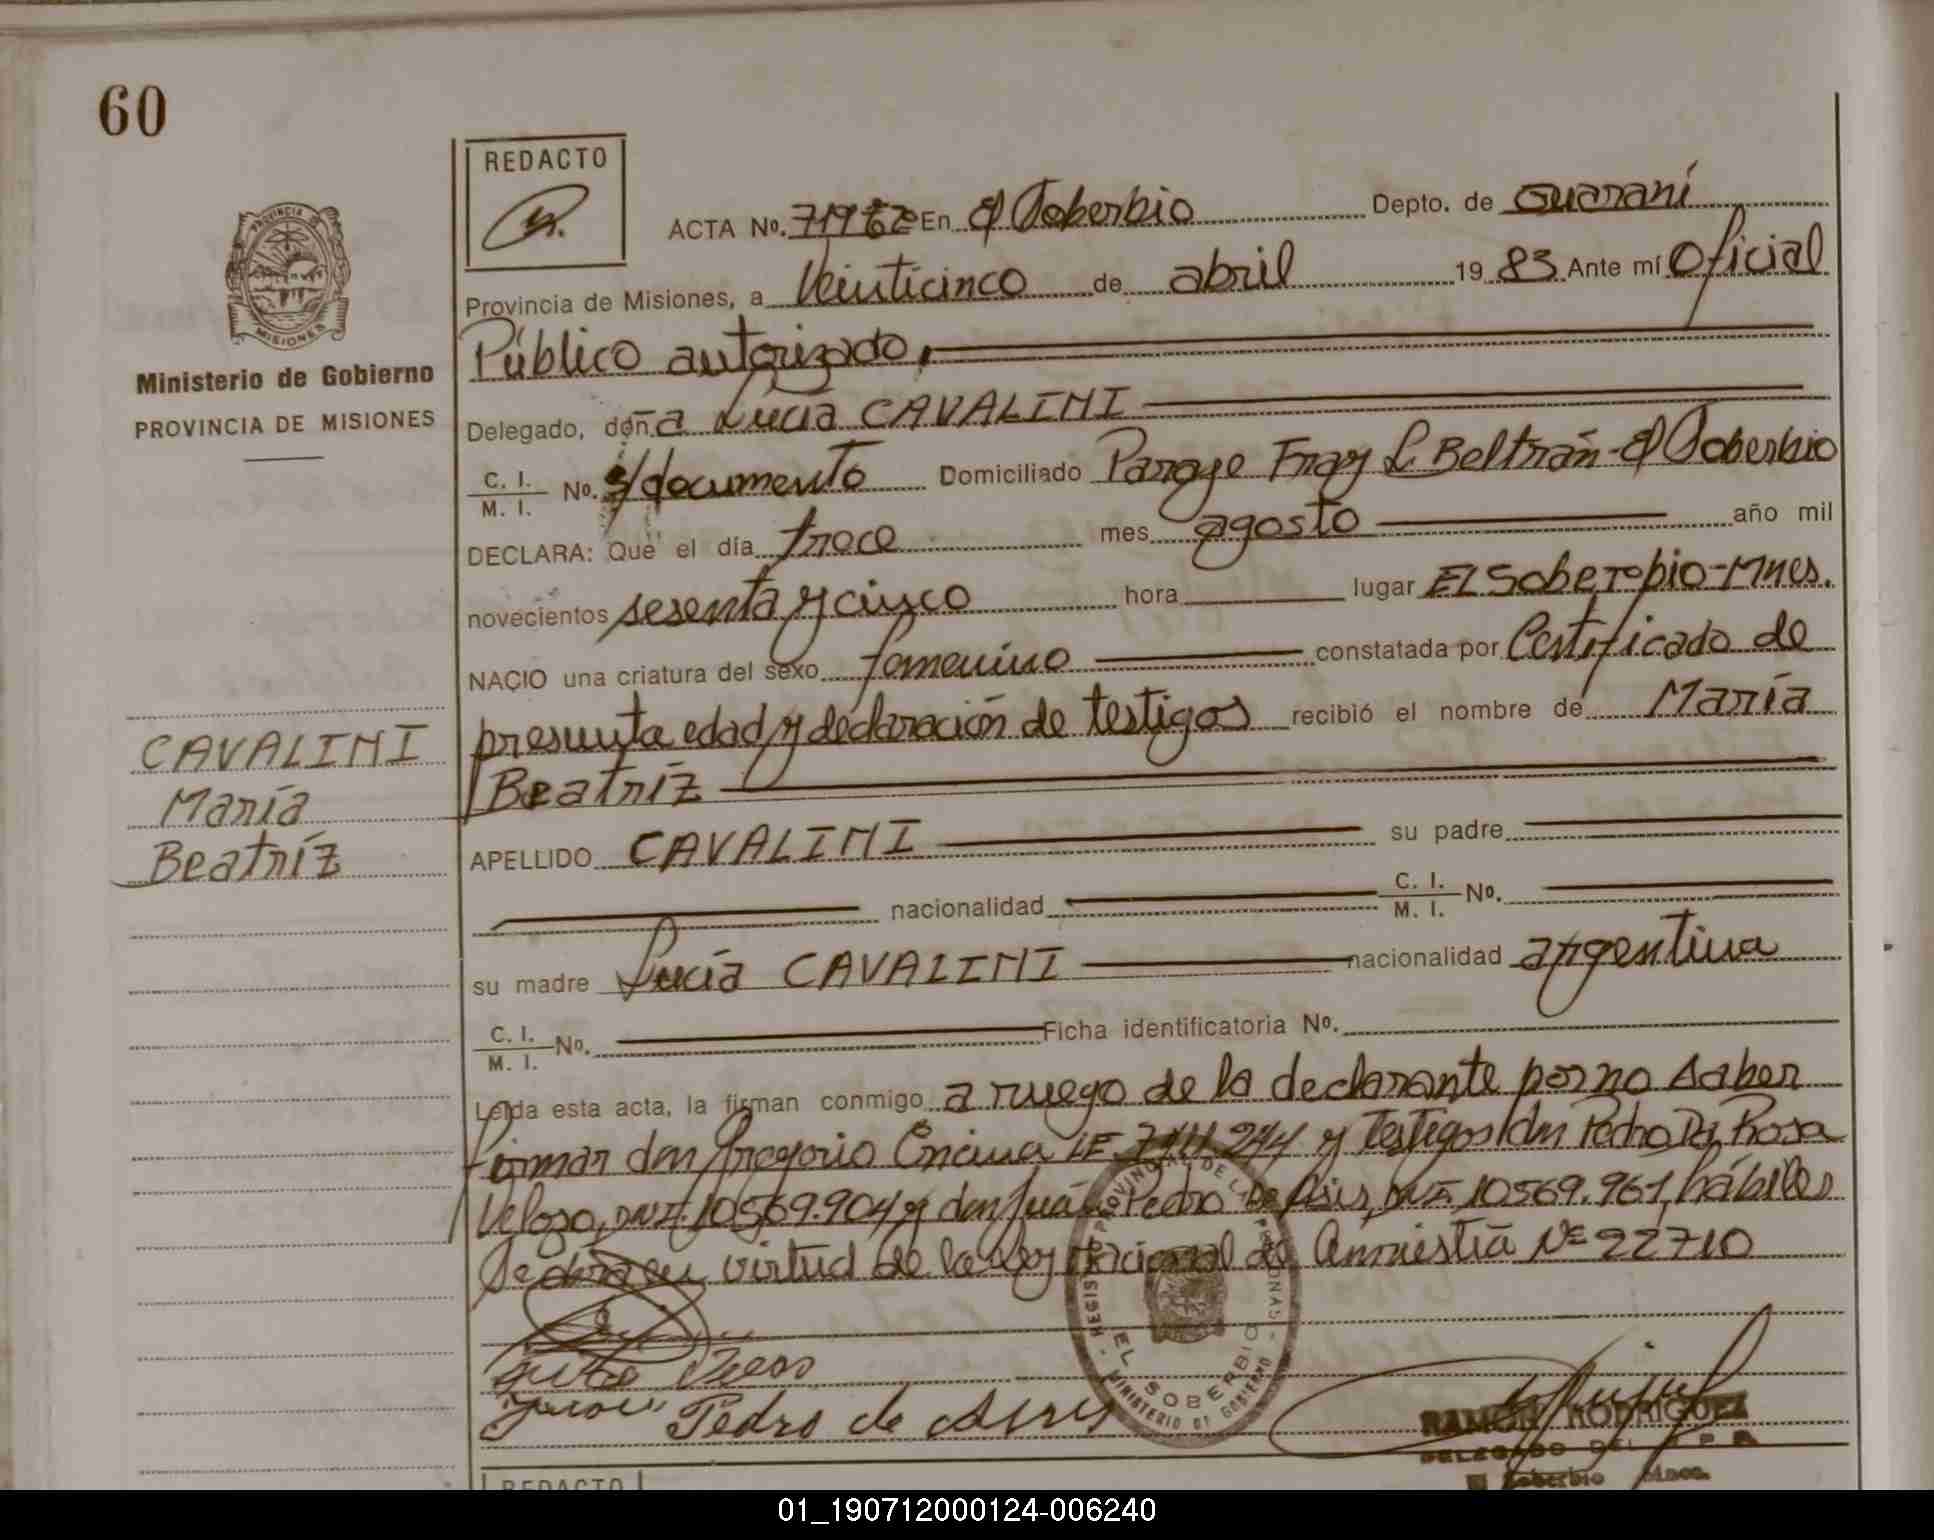 60
REDACTO
ACTA No. En El Soberbio Depto. de Guaraní
Provincia de Misiones, a Veinticinco de abril 19 83 Ante mí Oficial
Público autorizado,
PROVINCIA DE
MISIONES
Ministerio de Gobierno
PROVINCIA DE MISIONES
Delegado, doña Lucía CAVALINI
C. I.
M. I. No. s/documento Domiciliado Paraje Fray L. Beltrán - El Soberbio
DECLARA: Que el día trece mes agosto año mil
novecientos sesenta y cinco hora lugar El Soberbio - Mnes.
NACIO una criatura del sexo femenino constatada por Certificado de
presunta edad y declaración de testigos recibió el nombre de María
Beatríz
CAVALINI
María
Beatríz
APELLIDO CAVALINI su padre
nacionalidad C. I.
M. I. No.
su madre Lucía CAVALINI nacionalidad argentina
C. I.
M. I. No. Ficha identificatoria No.
Leída esta acta, la firman conmigo a ruego de la declarante por no saber
firmar don Gregorio Encina LE 244 y testigos don Pedro Da Rosa
Veloso, DNI. 10569.904 y don Juan Pedro De Asis, DNI. 10569.961, hábiles
en virtud de la ley nacional de Amnistía Nº 22710
Pedro de Asis
REGISTRO PROVINCIAL DE LAS PERSONAS
EL SOBERBIO
MINISTERIO DE GOBIERNO
RAMON RODRIGUEZ
DELEGADO DEL R P P
El Soberbio Mnes.
REDACTO
01_190712000124-006240